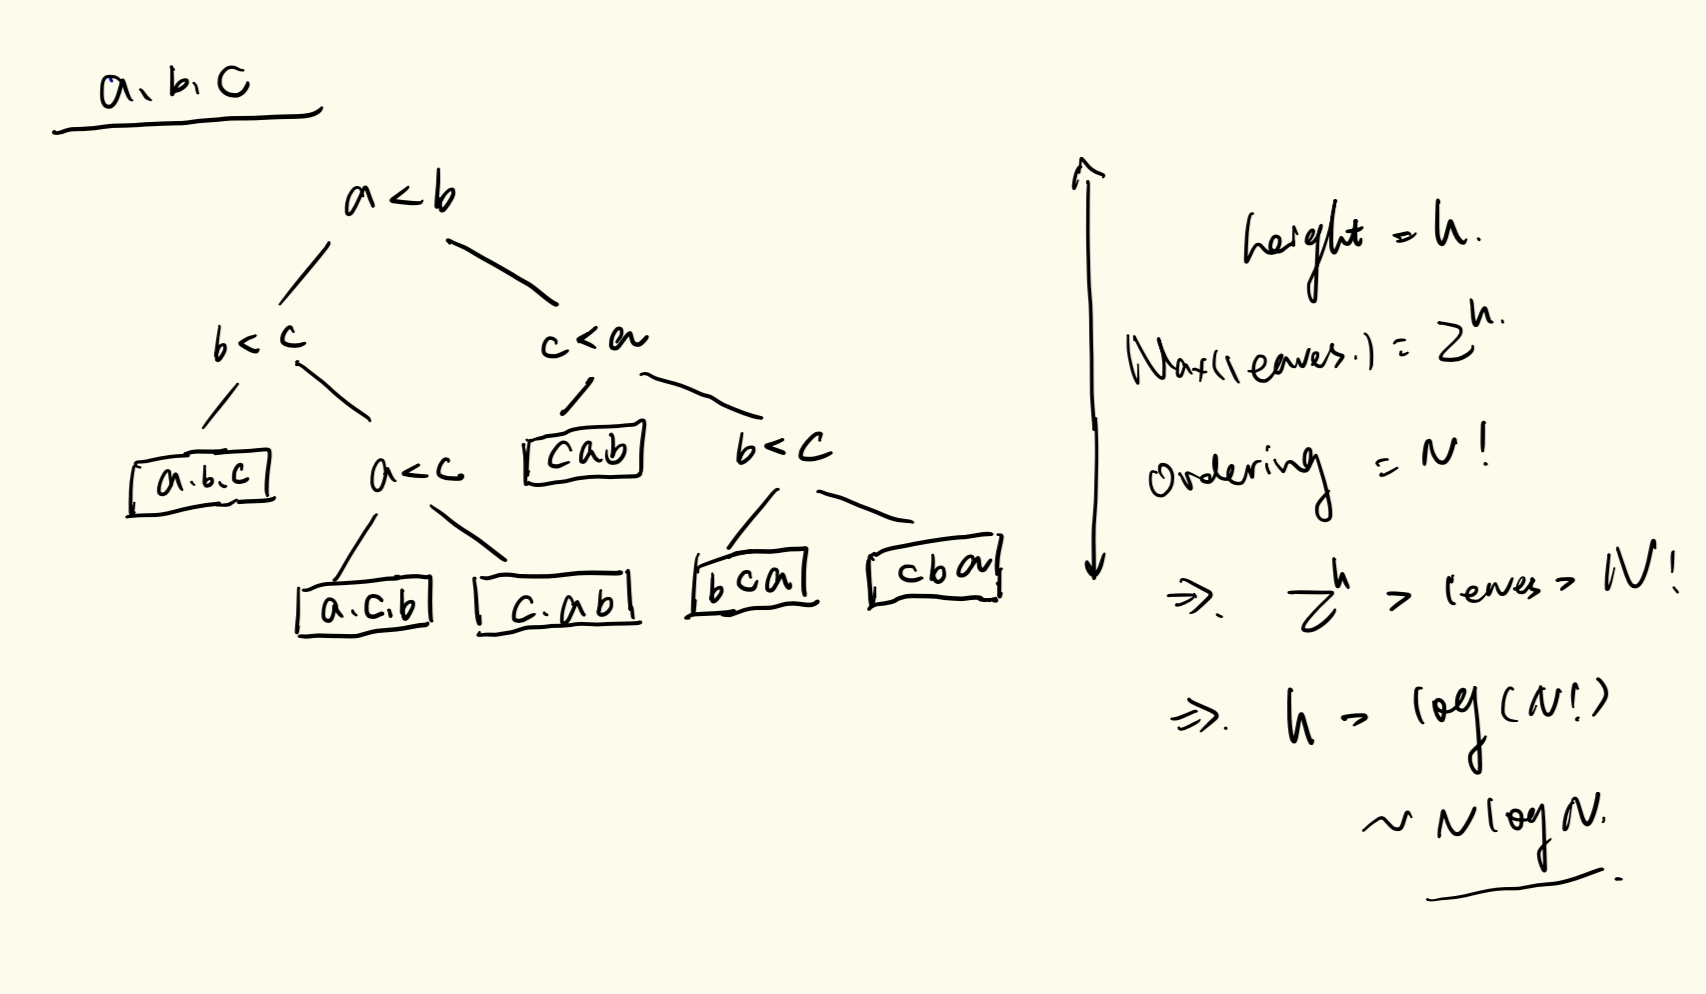 a、b、c
a < b
b < c
c < a
a.b.c
a < c
c a b
b < c
a.c.b
c.ab
b c a
c b a
height = h.
Max(leaves.) = 2^h.
ordering = N!
⇒. 2^h > leaves > N!
⇒. h > log(N!)
~ N log N.